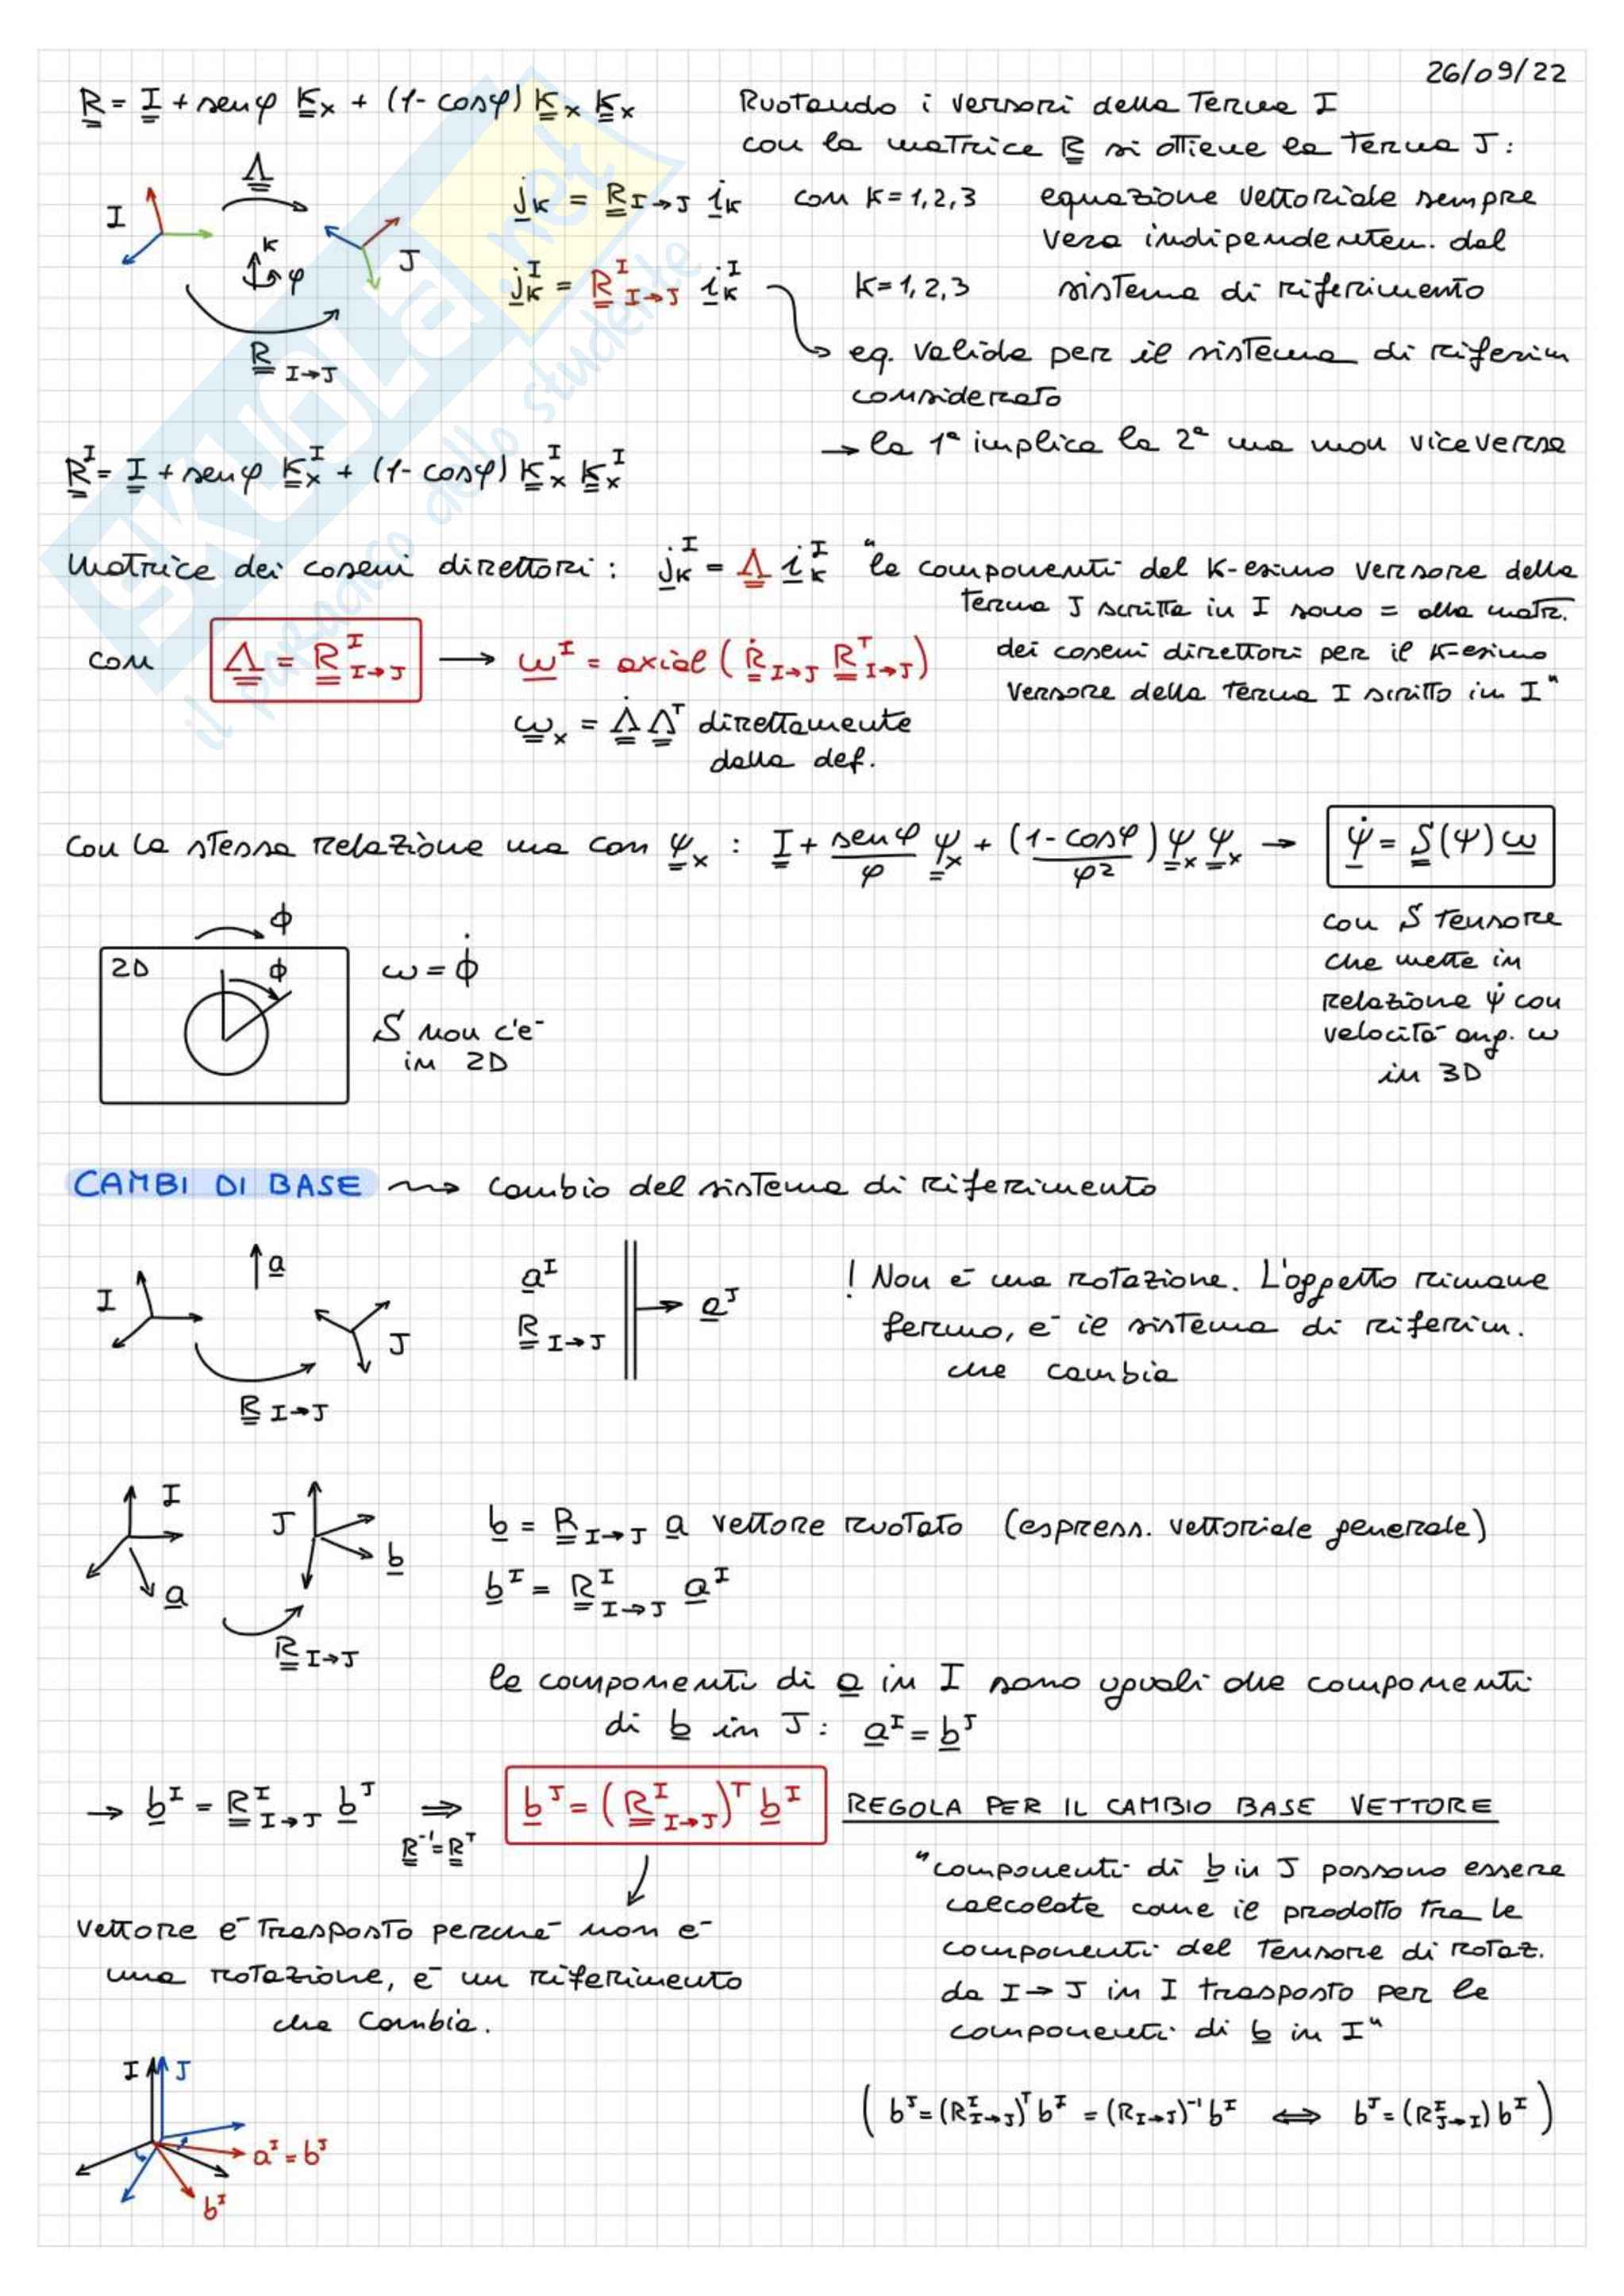 26/09/22
R = I + senφ K× + (1-cosφ) K× K×
Ruotando i versori della Terna I
con la matrice R si ottiene la Terna J:
Λ
I
J
K
φ
R I→J
j_K = R I→J i_K con K=1,2,3
equazione vettoriale sempre
vera indipendentem. dal
sistema di riferimento
j_K^I = R^I I→J i_K^I K=1,2,3
eq. valida per il sistema di riferim
considerato
→ la 1ª implica la 2ª ma non viceversa
R^I = I + senφ K×^I + (1-cosφ) K×^I K×^I
Matrice dei coseni direttori: j_K^I = Λ i_K^I "le componenti del K-esimo versore della
Terna J scritta in I sono = alla matr.
dei coseni direttori per il K-esimo
versore della Terna I scritto in I"
con Λ = R^I I→J → ω^I = axial (Ṙ I→J R^T I→J)
ω× = Λ̇ Λ^T direttamente
dalla def.
Con la stessa relazione ma con ψ× : I + senφ/φ ψ× + (1-cosφ)/φ² ψ× ψ× → ψ̇ = S(ψ) ω
con S Tensore
che mette in
relazione ψ̇ con
velocità ang. ω
in 3D
ϕ
2D ϕ
ω = ϕ̇
S non c'è
in 2D
CAMBI DI BASE ⇝ cambio del sistema di riferimento
I
a
J
R I→J
a^I
R I→J
→ a^J
! Non è una rotazione. L'oggetto rimane
fermo, è il sistema di riferim.
che cambia
I
a
J
b
R I→J
b = R I→J a vettore ruotato (espress. vettoriale generale)
b^I = R^I I→J a^I
le componenti di a in I sono uguali alle componenti
di b in J: a^I = b^J
→ b^I = R^I I→J b^J ⇒ b^J = (R^I I→J)^T b^I REGOLA PER IL CAMBIO BASE VETTORE
R^-1 = R^T
"componenti di b in J possono essere
calcolate come il prodotto tra le
componenti del Tensore di rotaz.
da I→J in I trasposto per le
componenti di b in I"
Vettore è Trasposto perché non è
una rotazione, è un riferimento
che cambia.
I J
a^I = b^J
b^I
( b^J = (R^I I→J)^T b^I = (R I→J)^-1 b^I ⟺ b^J = (R^I J→I) b^I )
SKUOLA.net
il paradiso dello studente